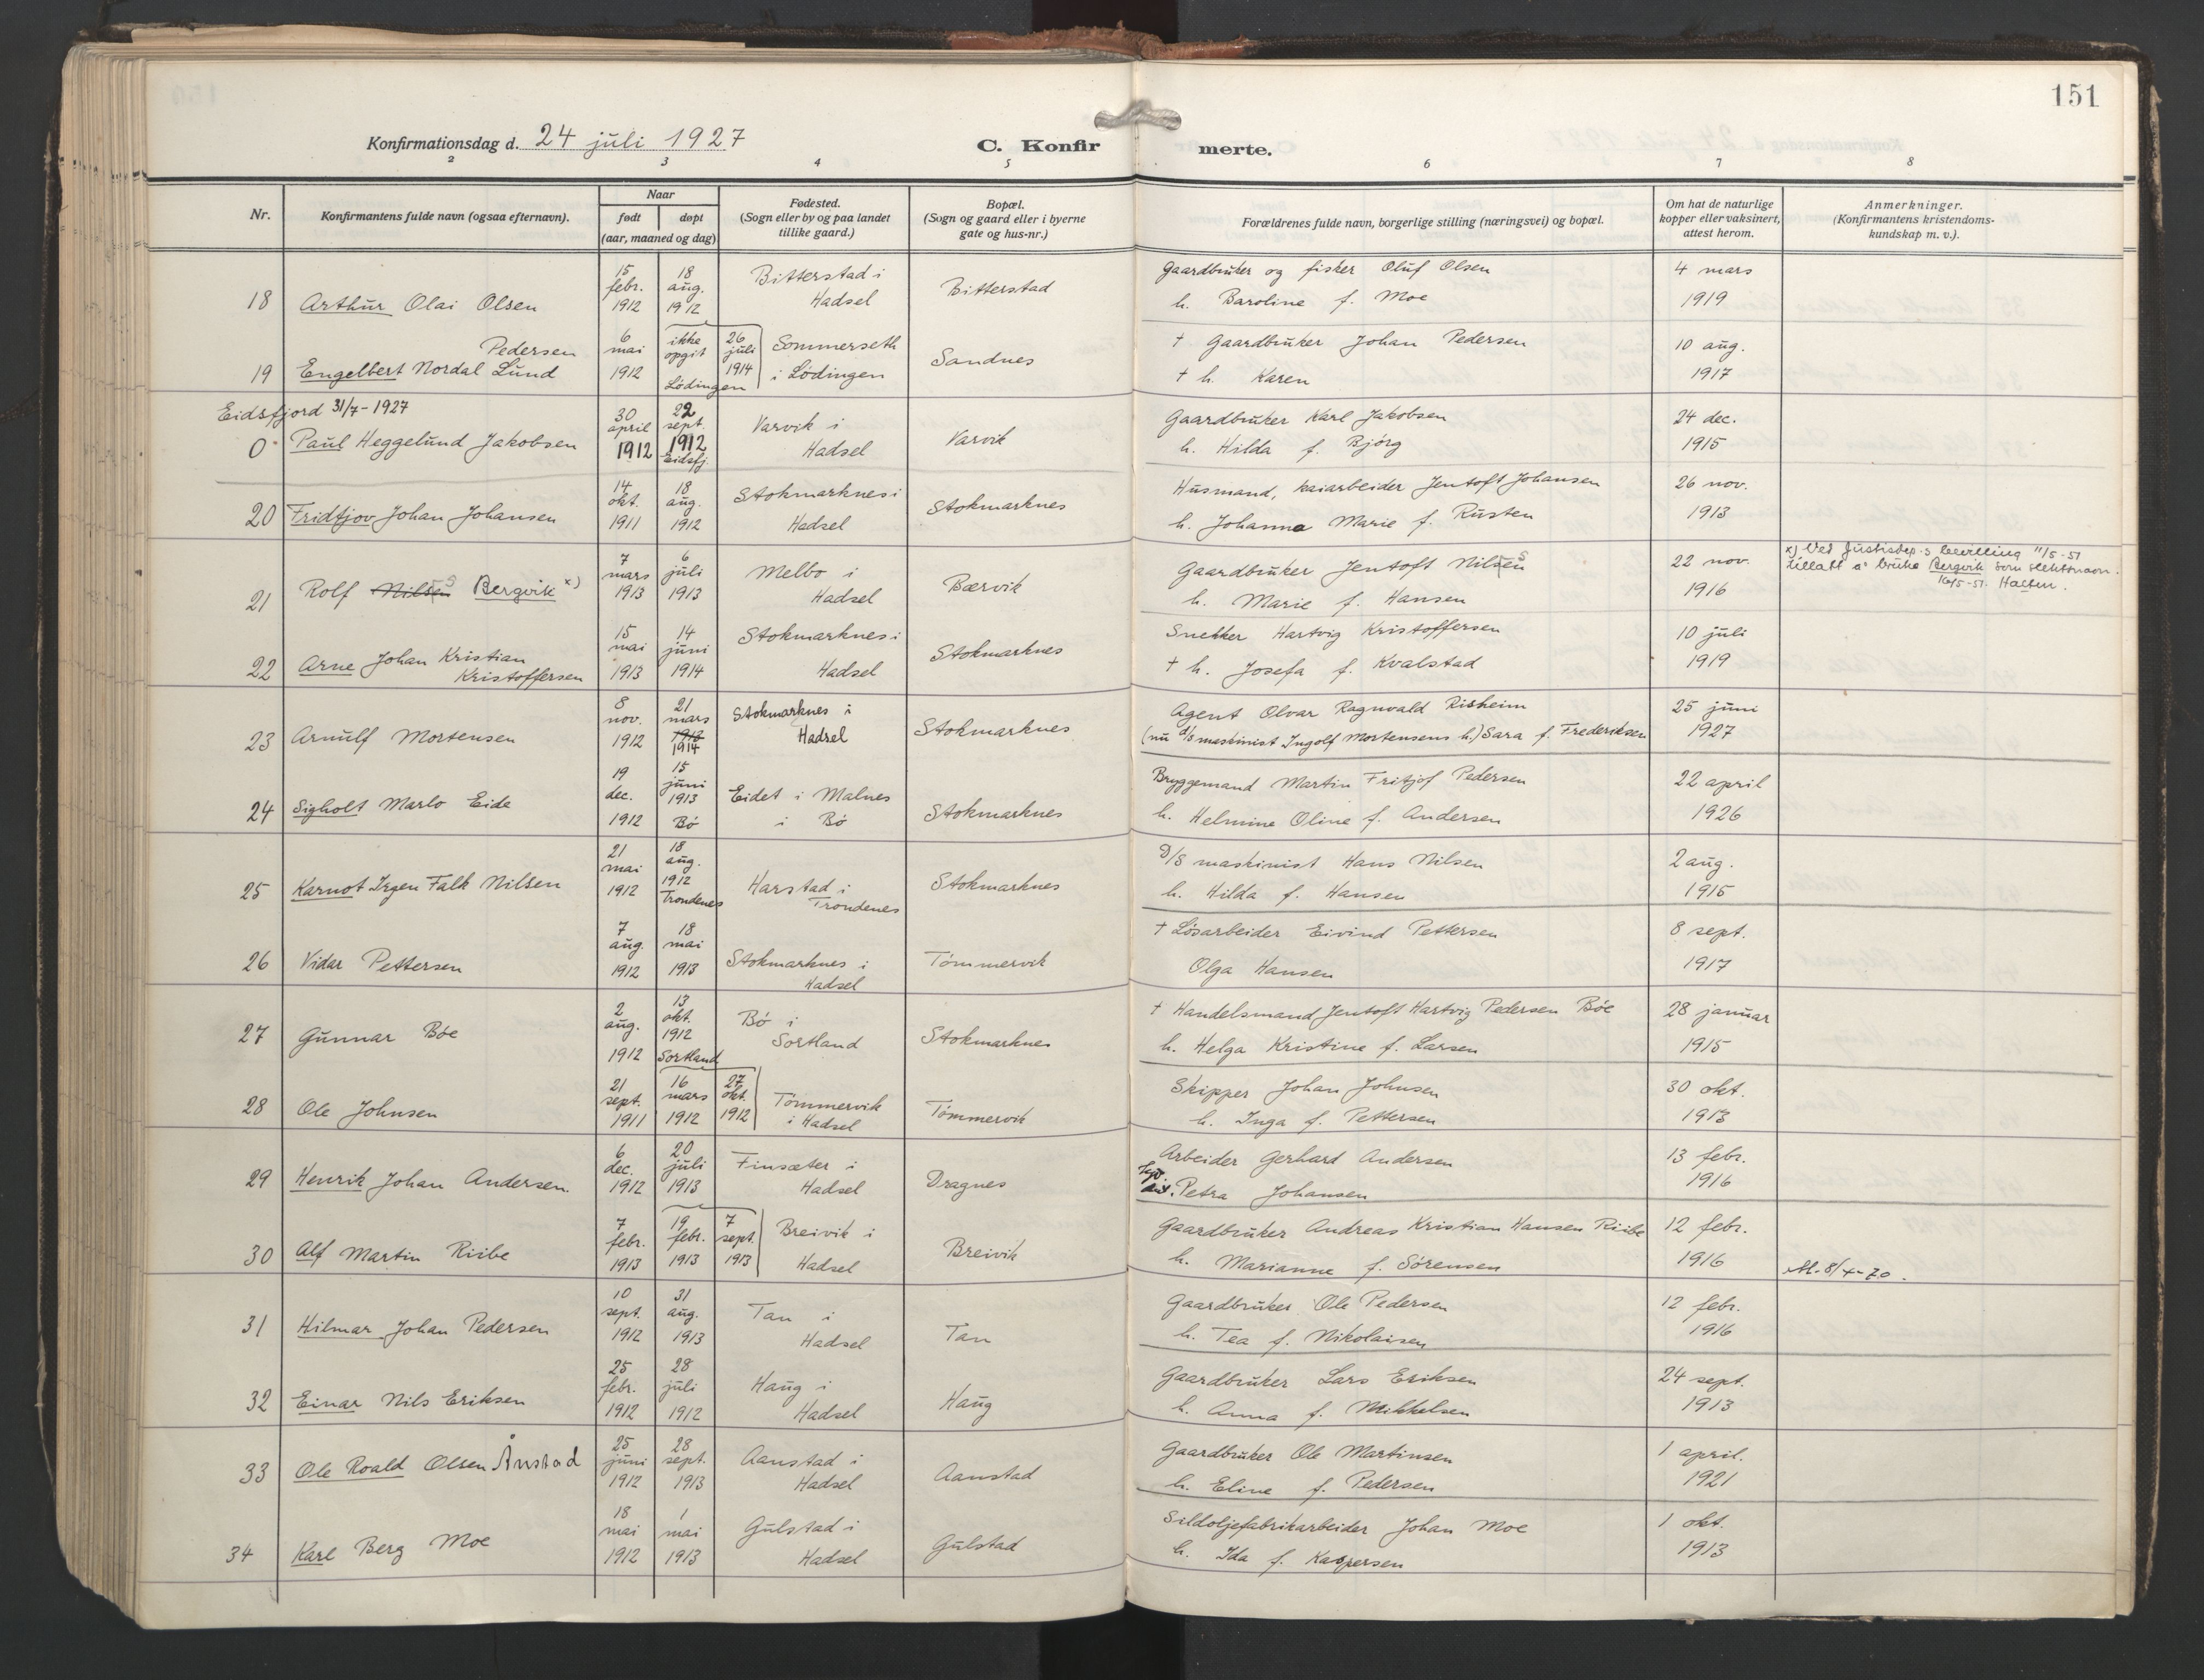 151
Konfirmationsdag d. 24 juli 1927
C. Konfirmerte.
2 3 4 5 6 7 8
Nr.
Konfirmantens fulde navn (ogsaa efternavn).
Naar
født døpt
(aar, maaned og dag)
Fødested.
(Sogn eller by og paa landet
tillike gaard.)
Bopæl.
(Sogn og gaard eller i byerne
gate og hus-nr.)
Forældrenes fulde navn, borgerlige stilling (næringsvei) og bopæl.
Om hat de naturlige
kopper eller vaksinert,
attest herom.
Anmerkninger.
(Konfirmantens kristendoms-
kundskap m. v.).
18 Arthur Olai Olsen
15 febr. 1912
18 aug. 1912
Bitterstad i
Hadsel
Bitterstad
Gaardbruker og fisker Oluf Olsen
h. Baroline f. Moe
4 mars
1919
Pedersen
19 Engelbert Nordal Lund
6 mai 1912
ikke opgit Lödingen
26 juli 1914
Sommerseth
i Lödingen
Sandnes
+ Gaardbruker Johan Pedersen
+ h. Karen
10 aug.
1917
Eidsfjord 31/7-1927
0 Paul Heggelund Jakobsen
30 april 1912
22 sept. 1912 Eidsfj.
Varvik i
Hadsel
Varvik
Gaardbruker Karl Jakobsen
h. Hilda f. Bjørg
24 dec.
1915
20 Fridtjov Johan Johansen
14 okt. 1911
18 aug. 1912
Stokmarknes i
Hadsel
Stokmarknes
Husmand, kaiarbeider Jentoft Johansen
h. Johanna Marie f. Rusten
26 nov.
1913
21 Rolf Nilsen Bergvik x)
7 mars 1913
6 juli 1913
Melbo i
Hadsel
Bærvik
Gaardbruker Jentoft Nilsen
h. Marie f. Hansen
22 nov.
1916
x) Ved Justisdep.s bevilling 11/5-51
tillatt å bruke Bergvik som slektsnavn.
16/5-51.
22 Arne Johan Kristian
Kristoffersen
15 mai 1913
14 juni 1914
Stokmarknes i
Hadsel
Stokmarknes
Snekker Hartvig Kristoffersen
+ h. Josefa f. Kvalstad
10 juli
1919
23 Arnulf Mortensen
8 nov. 1912
21 mars 1913 1914
Stokmarknes i
Hadsel
Stokmarknes
Agent Olvar Ragnvald Risheim
(nu d/s maskinist Ingolf Mortensens h.) Sara f. Frederiksen
25 juni
1927
24 Sigholt Marlo Eide
19 dec. 1912
15 juni 1913 Bö
Eidet i Malnes
i Bö
Stokmarknes
Bryggemand Martin Fritjof Pedersen
h. Helmine Oline f. Andersen
22 april
1926
25 Karnot Irgen Falk Nilsen
21 mai 1912
18 aug. 1912 Trondenes
Harstad i
Trondenes
Stokmarknes
D/S maskinist Hans Nilsen
h. Hilda f. Hansen
2 aug.
1915
26 Vidar Pettersen
7 aug. 1912
18 mai 1913
Stokmarknes i
Hadsel
Tömmervik
+ Lösarbeider Eivind Pettersen
Olga Hansen
8 sept.
1917
27 Gunnar Böe
2 aug. 1912
13 okt. 1912 Sortland
Bö i
Sortland
Stokmarknes
+ Handelsmand Jentoft Hartvig Pedersen Böe
h. Helga Kristine f. Larsen
28 januar
1915
28 Ole Johnsen
21 sept. 1911
16 mars 1912
27 okt. 1912
Tömmervik
i Hadsel
Tömmervik
Skipper Johan Johnsen
h. Inga f. Pettersen
30 okt.
1913
29 Henrik Johan Andersen.
6 dec. 1912
20 juli 1913
Finsæter i
Hadsel
Dragnes
Arbeider Gerhard Andersen
Petra Johansen
13 febr.
1916
30 Alf Martin Riibe
7 febr. 1913
19 febr. 1913
7 sept. 1913
Breivik i
Hadsel
Breivik
Gaardbruker Andreas Kristian Hansen Riibe
h. Marianne f. Sörensen
12 febr.
1916
31 Hilmar Johan Pedersen
10 sept. 1912
31 aug. 1913
Tan i
Hadsel
Tan
Gaardbruker Ole Pedersen
h. Tea f. Nikolaisen
12 febr.
1916
32 Einar Nils Eriksen
25 febr. 1912
28 juli 1912
Haug i
Hadsel
Haug
Gaardbruker Lars Eriksen
h. Anna f. Mikkelsen
24 sept.
1913
33 Ole Roald Olsen Ånstad
25 juni 1912
28 sept. 1913
Aanstad i
Hadsel
Aanstad
Gaardbruker Ole Martinsen
h. Eline f. Pedersen
1 april.
1921
34 Karl Berg Moe
18 mai 1912
1 mai 1913
Gulstad i
Hadsel
Gulstad
Sildoljefabrikarbeider Johan Moe
h. Ida f. Kaspersen
1 okt.
1913